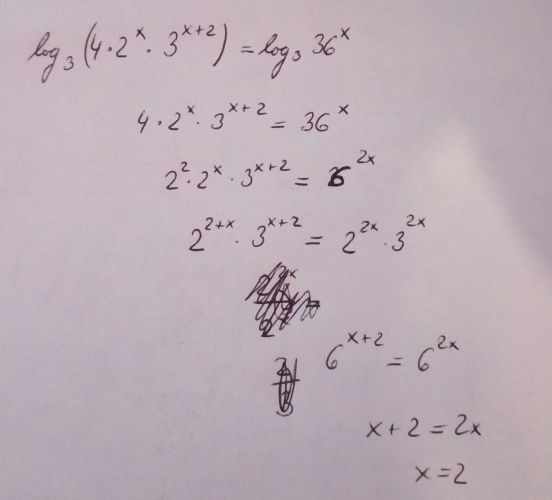 log₃(4·2ˣ·3ˣ⁺²) = log₃ 36ˣ
4·2ˣ·3ˣ⁺² = 36ˣ
2²·2ˣ·3ˣ⁺² = 6²ˣ
2²⁺ˣ·3ˣ⁺² = 2²ˣ·3²ˣ
6ˣ⁺² = 6²ˣ
x+2 = 2x
x=2